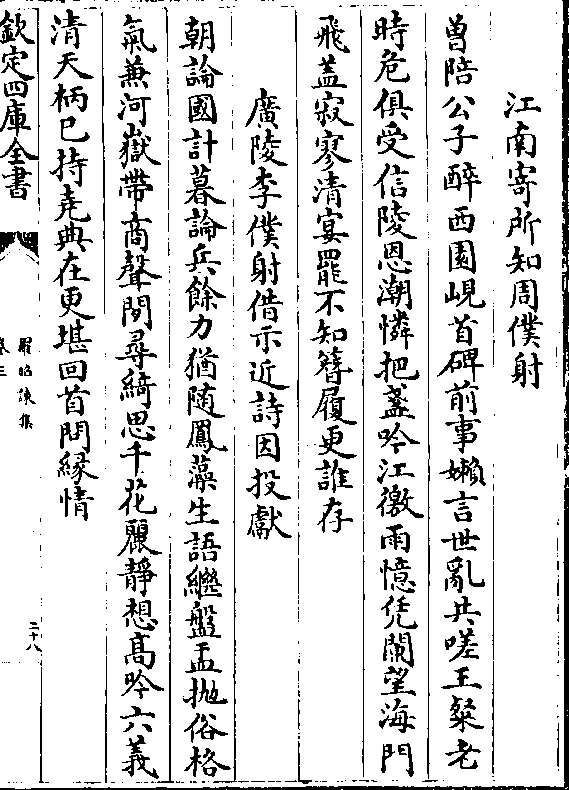 江南寄所知周僕射
曽陪公子醉西園峴首碑前事嬾言世亂共嗟王粲老
時危俱受信陵恩潮憐把盞吟江徼雨憶凭闌望海門
飛盖寂寥清宴罷不知簪履更誰存
廣陵李僕射借示近詩因投獻
朝論國計暮論兵餘力猶随鳳藻生語繼盤盂抛俗格
氣兼河嶽帶商聲閒尋綺思千花麗静想髙吟六義
清天柄已持尭典在更堪回首問縁情
欽定四庫全書
羅昭諫集
卷三
二十八